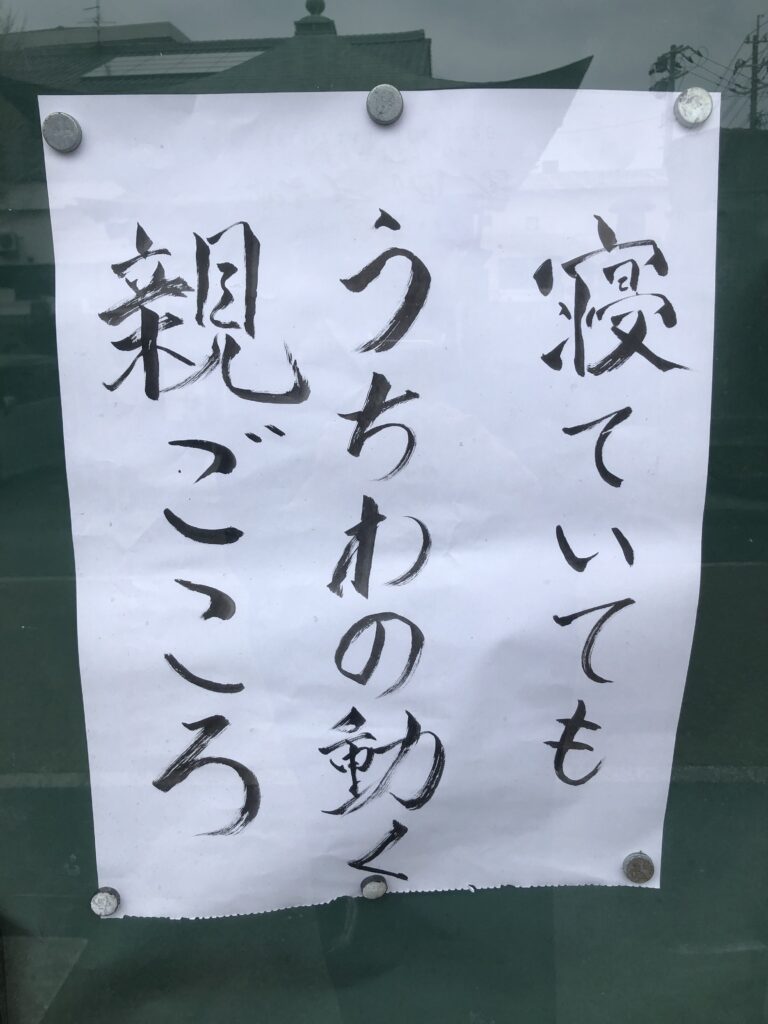 寝ていても
うちわの動く
親ごころ